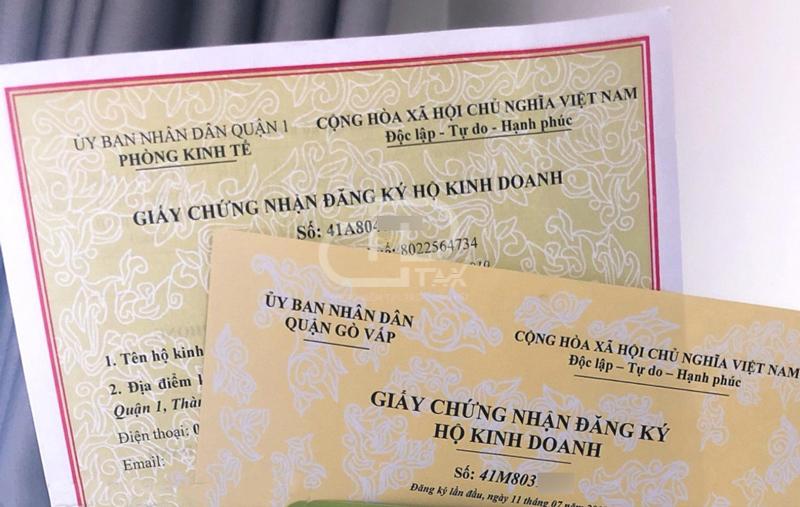 ỦY BAN NHÂN DÂN QUẬN 1
PHÒNG KINH TẾ
CỘNG HÒA XÃ HỘI CHỦ NGHĨA VIỆT NAM
Độc lập - Tự do - Hạnh phúc
GIẤY CHỨNG NHẬN ĐĂNG KÝ HỘ KINH DOANH
Số: 41A804
số: 8022564734
1. Tên hộ kinh
2. Địa điểm
Quận 1, Thàn
Điện thoại: 0
Email:
TAX
ỦY BAN NHÂN DÂN
QUẬN GÒ VẤP
CỘNG HÒA XÃ HỘI CHỦ NGHĨA VIỆT NAM
Độc lập – Tự do – Hạnh phúc
GIẤY CHỨNG NHẬN ĐĂNG KÝ
HỘ KINH DOANH
Số: 41M803
Đăng ký lần đầu, ngày 11 tháng 07 năm